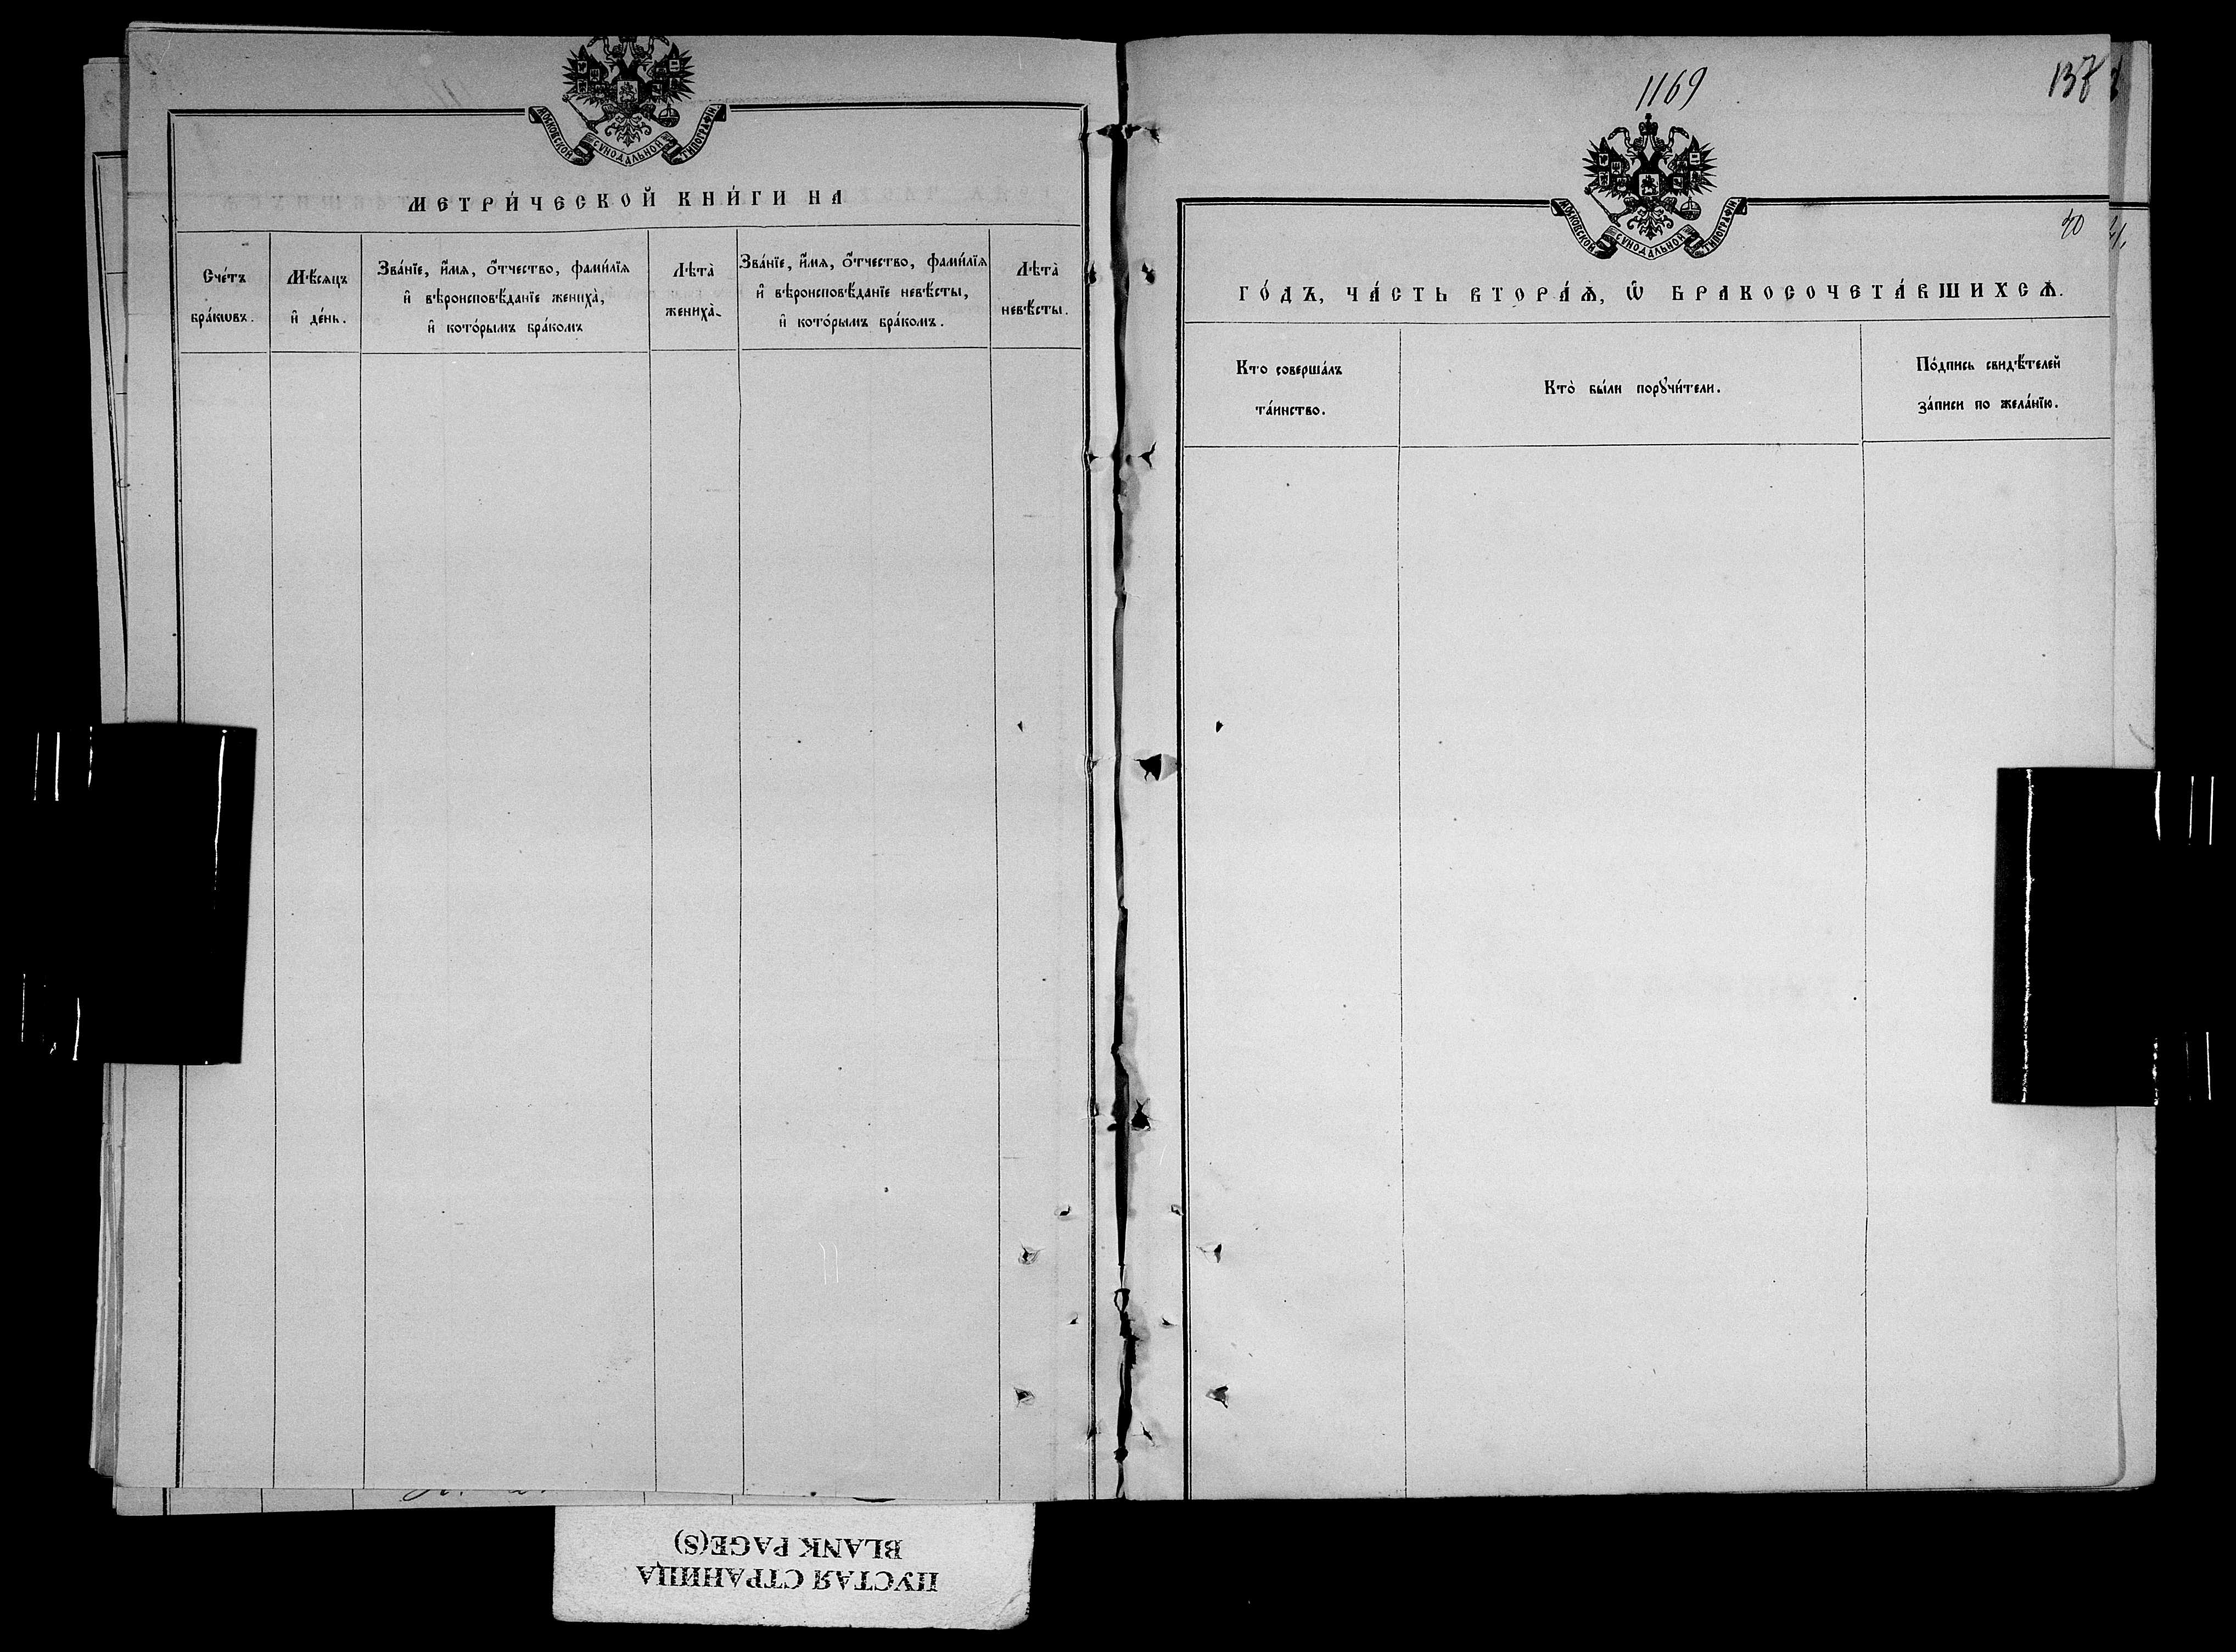 МОСКОВСКОЙ СѴНОДАЛЬНОЙ ТИПОГРАФІИ
МЕТРИ́ЧЕСКОЙ КНИ́ГИ НА
Сче́тъ
бра́кѡвъ.
Мѣ́сяцъ
и҆ де́нь.
Зва́нїе, и҆́мѧ, ѻ҆́тчество, фами́лїѧ
и҆ вѣроисповѣ́данїе жениха̀,
и҆ кото́рымъ бра́комъ
Лѣта̀
жениха̀.
Зва́нїе, и҆́мѧ, ѻ҆́тчество, фами́лїѧ
и҆ вѣроисповѣ́данїе невѣ́сты,
и҆ кото́рымъ бра́комъ.
Лѣта̀
невѣ́сты.
1169
137
МОСКОВСКОЙ СѴНОДАЛЬНОЙ ТИПОГРАФІИ
40
41,
ГО́ДЪ, ЧА́СТЬ ВТОРА́Ѧ, Ѡ҆ БРАКОСОЧЕТА́ВШИХСѦ.
Кто совершáлъ
тáинство.
Кто̀ бы́ли порꙋчи́тели.
По́дпись свидѣ́телей
за́писи по жела́нїю.
ПУСТАЯ СТРАНИЦА
BLANK PAGE(S)